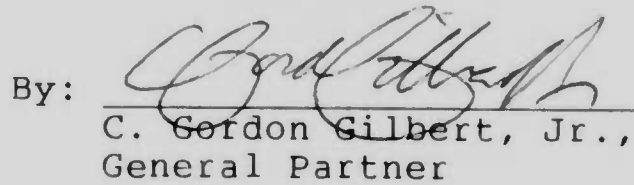 By:
C. Gordon Gilbert, Jr.,
General Partner